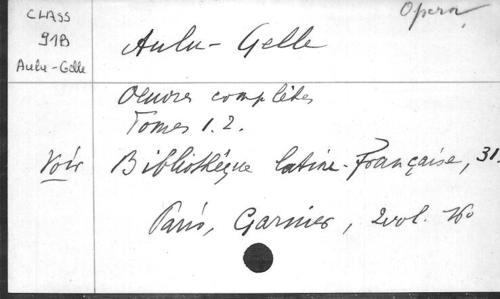 CLASS
91B
Aulu-Gelle
Opera
Aulu-Gelle
Oeuvres complètes
Tomes 1.2.
Voir
Bibliothèque latine-française, 31.
Paris, Garnier, 2 vol.